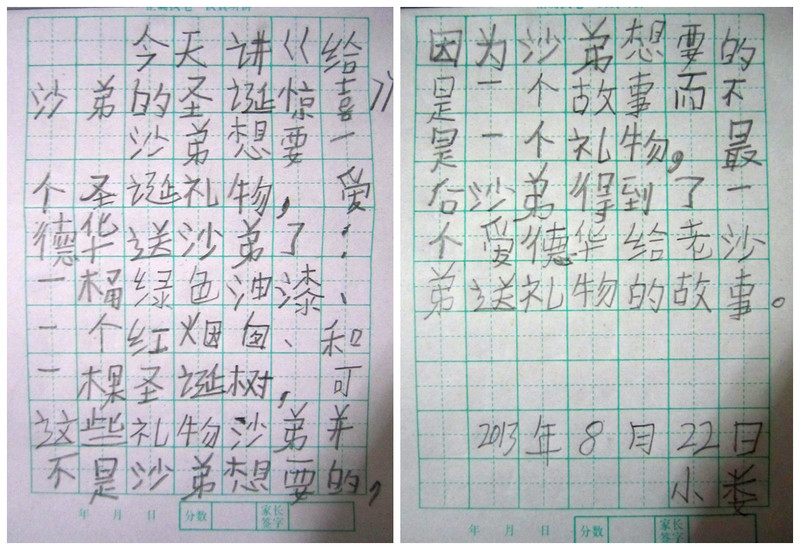 今天讲《给
沙弟的圣诞惊喜》
沙弟想要一
个圣诞礼物,爱
德华送沙弟了:
一桶绿色油漆、
一个红烟囱、和
一棵圣诞树,可
这些礼物沙弟并
不是沙弟想要的,
年 月 日 分数 家长签字
因为沙弟想要的
是一个故事而不
是一个礼物,最
后沙弟得到了一
个爱德华给老沙
弟送礼物的故事。
2013年8月22日
小娄
年 月 日 分数 家长签字